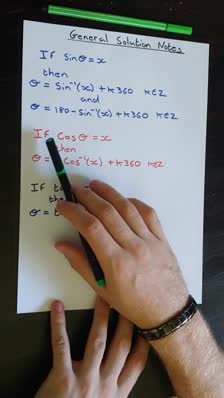 General Solution Notes
If Sinθ = x
then
θ = Sin⁻¹(x) + k360 k∈Z
and
θ = 180 - Sin⁻¹(x) + k360 k∈Z
If Cosθ = x
then
θ = Cos⁻¹(x) + k360 k∈Z
If
θ =